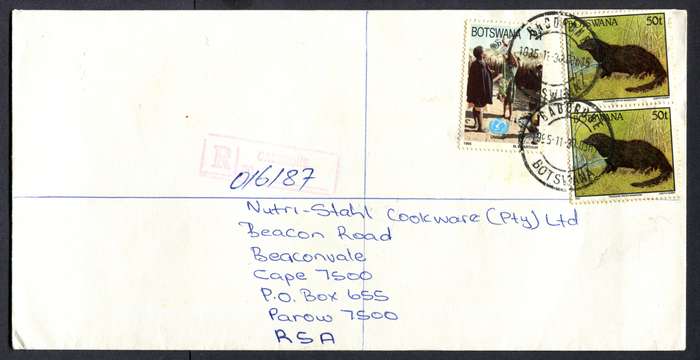 BOTSWANA
BOTSWANA 50t
BOTSWANA 50t
GABORONE
BOTSWANA
R
016187
Nutri-Stahl Cookware (Pty) Ltd
Beacon Road
Beaconvale
Cape 7500
P.O. Box 655
Parow 7500
RSA